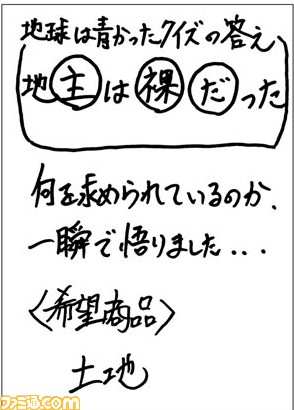 地球は青かったクイズの答え
地主は裸だった
何を求められているのか、
一瞬で悟りました...
〈希望商品〉
土地
ファミ通.com